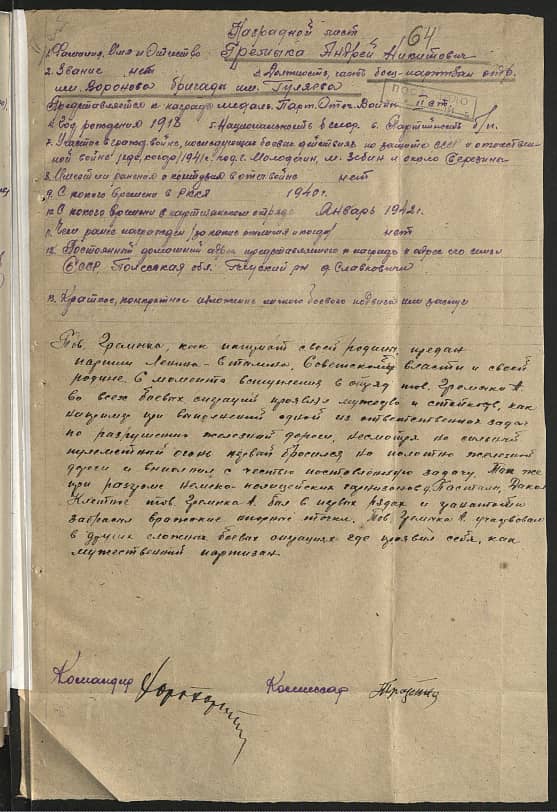 Наградной лист
64
1. Фамилия, Имя и Отчество Громыка Андрей Никитович
2. Звание нет 3. Должность, часть боец-партизан отр.
им. Воронова бригады им. Гуляева
Представляется к награде медаль Парт. Отеч. Войны
4. Год рождения 1918 5. Национальность белор. 6. Партийность б/п.
7. Участие в гражд. войне, последующих боевых действиях по защите СССР и отечествен-
ной войне /где, когда/ 1941г. под г. Молодечн, м. и около Березина
8. Имеет ли ранения и контузии в отеч. войне нет
9. С какого времени в РККА 1940г.
10. С какого времени в партизанском отряде Январь 1942г.
11. Чем ранее награжден /за какие отличия и когда/ нет
12. Постоянный домашний адрес представляемого к награде и адрес его семьи
БССР Полесская обл. Глуский рн д. Славковичи
13. Краткое, конкретное изложение личного боевого подвига или заслуг
Тов. Громыка, как патриот своей родины, предан
партии Ленина-Сталина, Советской власти и своей
родине. С момента вступления в отряд тов. Громыка А.
во всех боевых ситуаций проявлял мужество и стойкость, как
например при выполнении одной из ответственных задач
по разрушению железной дороги, несмотря на сильный
пулеметный огонь первый бросился на полотно железной
дороги и выполнил с честью поставленную задачу. Так же
при разгроме немецко-полицейских гарнизонов д.
тов. Громыка А. был в первых рядах и гранатами
забросал вражеские огневые точки. Тов. Громыка А. участвовал
в других сложных боевых операциях где проявил себя, как
мужественный партизан.
Командир Комиссар